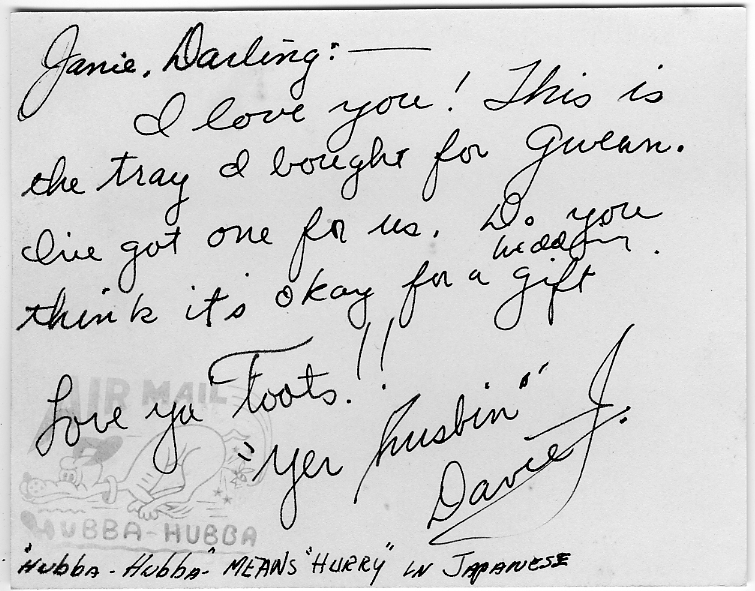 Janie, Darling: —
I love you! This is
the tray I bought for Gwenn.
I've got one for us. Do you
think it's okay for a wedding gift.
Love ya Toots!!
"Yer husbin"
Davie J.
AIR MAIL
HUBBA-HUBBA
"Hubba-Hubba" MEANS "HURRY" IN JAPANESE